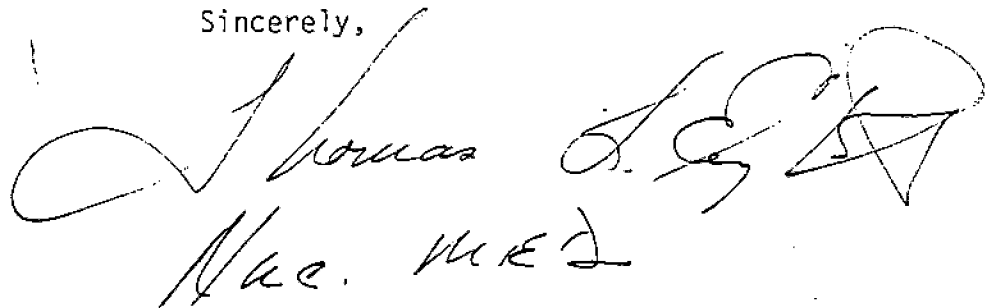 Sincerely,
Thomas L.
Nuc. MED